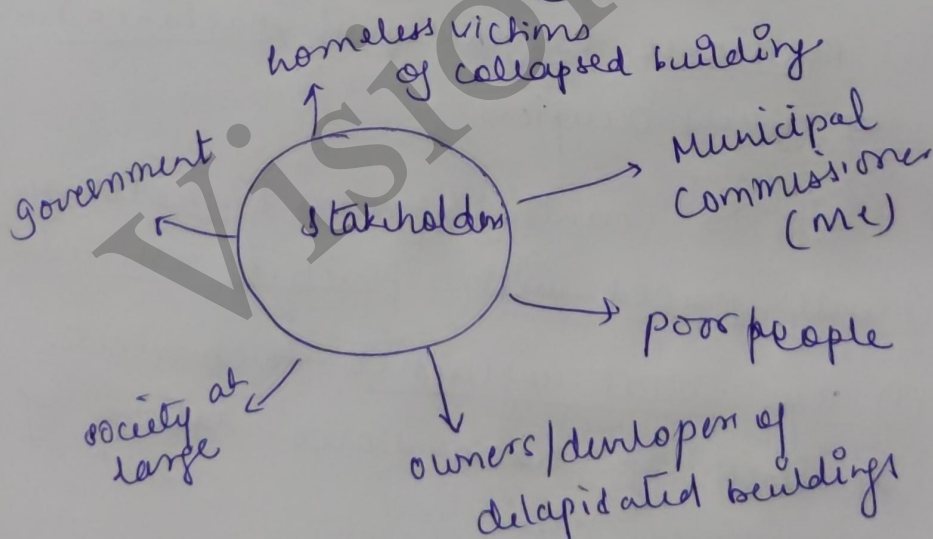 homeless victims
of collapsed building
government
Stakeholders
Municipal
Commissioner
(MC)
poor people
society at
large
owners/developers of
delapidated buildings
Vision